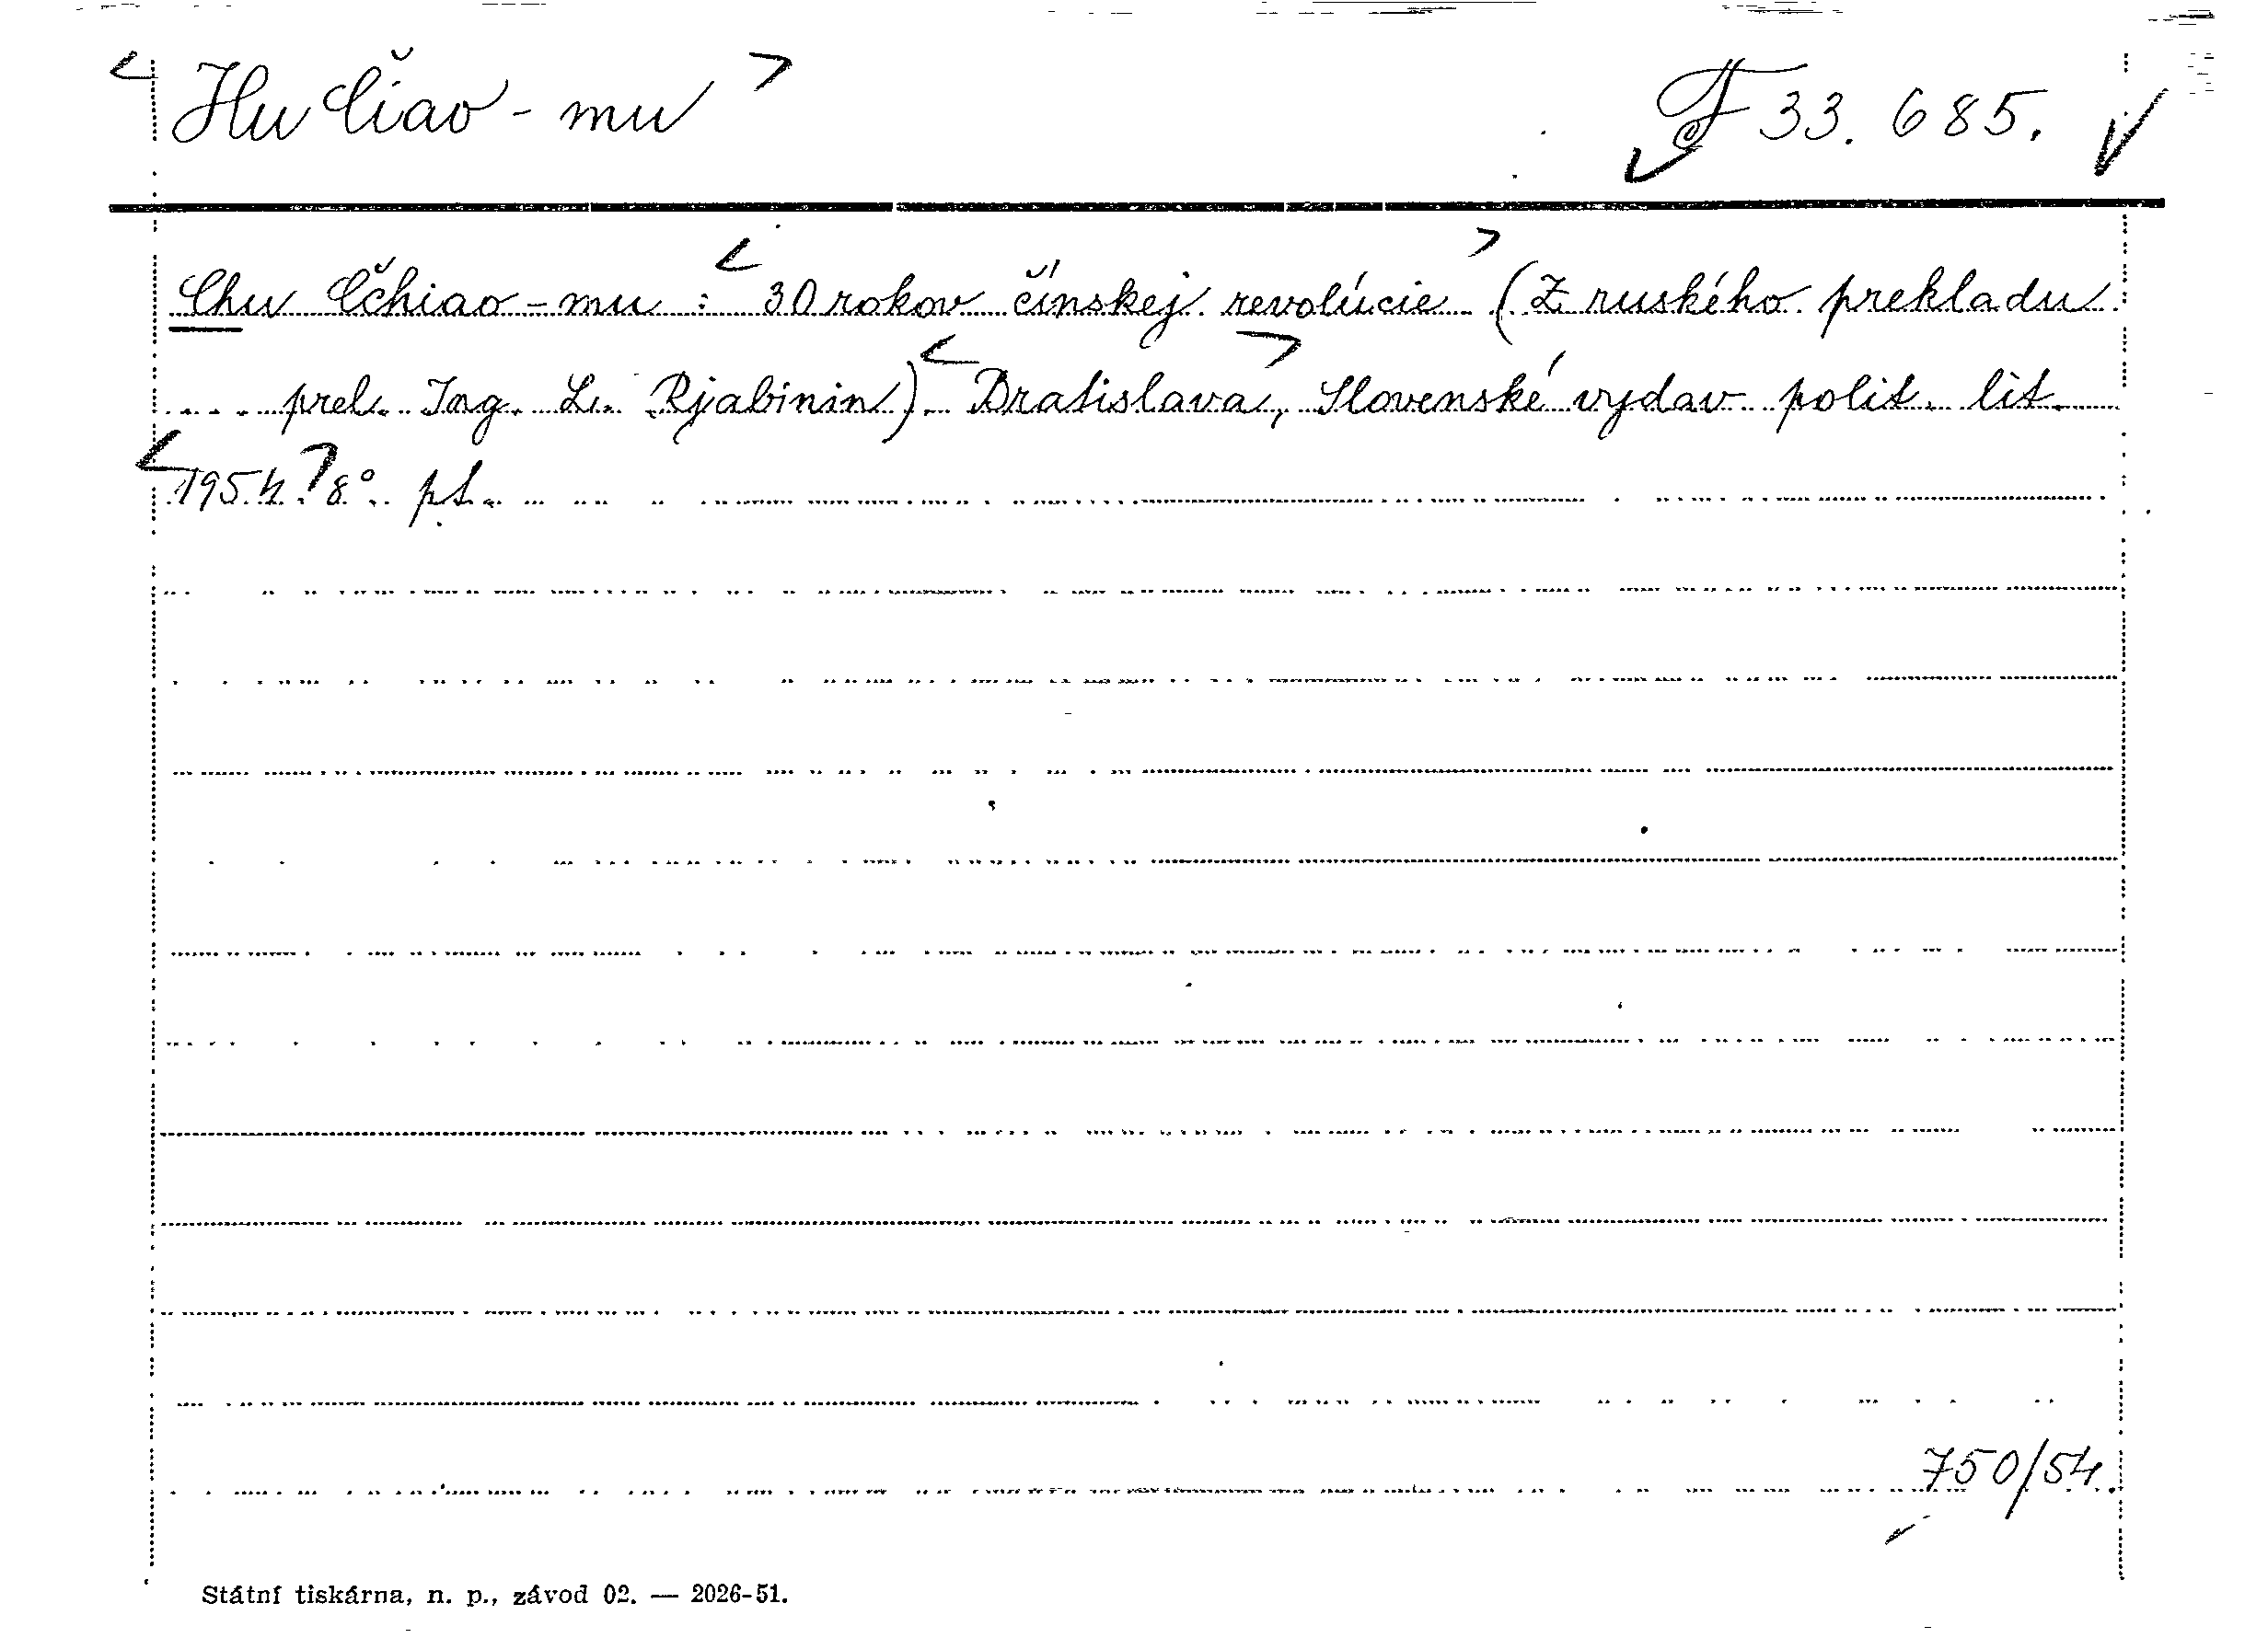 < Hu Čiao-mu > F 33.685.
Chu Čchiao-mu: < 30 rokov čínskej revolúcie > (Z ruského prekladu
prel. Ing. L. Rjabinin). < Bratislava, > Slovenské vydav. polit. lit.
< 1954. > 8°. pt.
750/54.
Státní tiskárna, n. p., závod 02. — 2026-51.